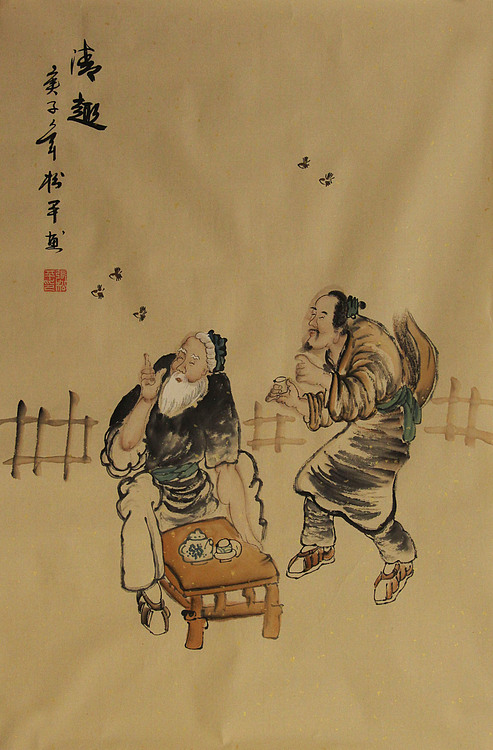 清趣
庚子年松平画